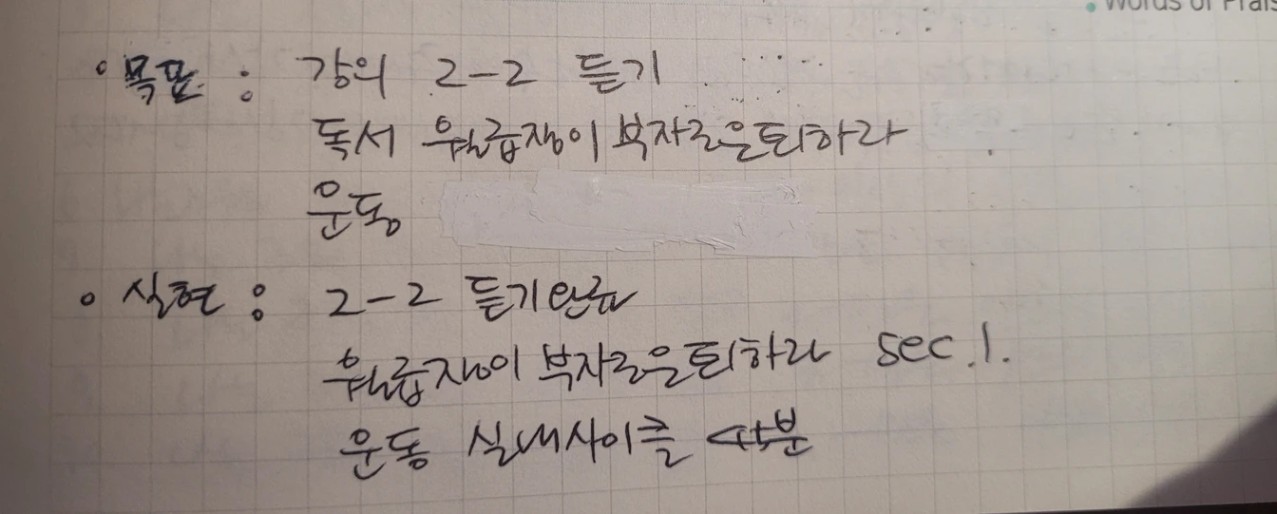 Words of Prais
• 목표 : 강의 2-2 듣기
독서 월급쟁이 부자로은퇴하라
운동
• 실현 : 2-2 듣기완료
월급쟁이 부자로은퇴하라 sec.1.
운동 실내사이클 45분